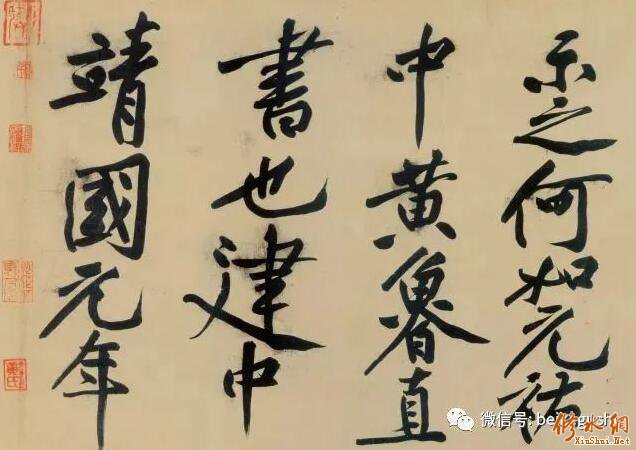 示之何如元祐
中黄魯直
書也建中
靖國元年
微信号: beijingushi
修水網
XiuShui.Net